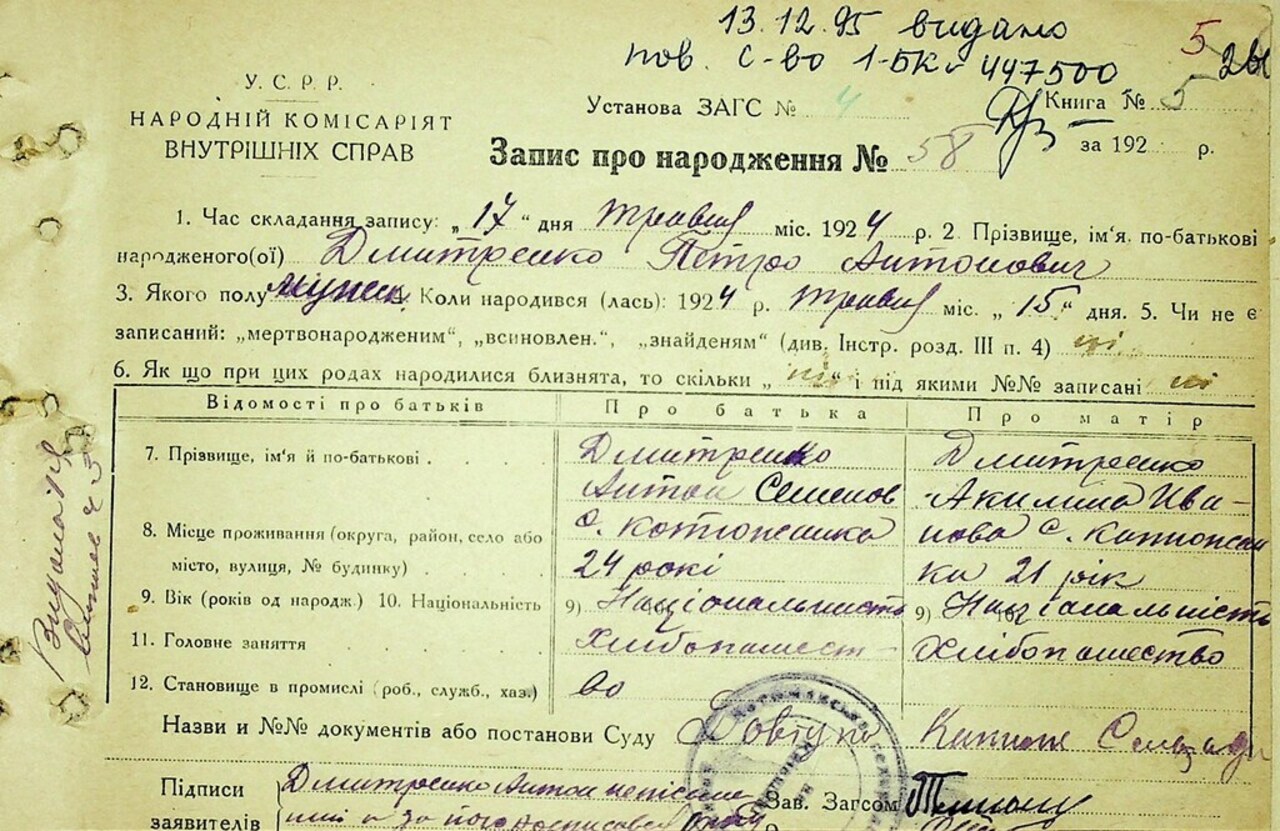 13.12.95 видано
пов. с-во 1-БК 447500
5
У.С.Р.Р.
НАРОДНІЙ КОМІСАРІЯТ
ВНУТРІШНІХ СПРАВ
Установа ЗАГС № 4
Книга № 5
за 192 р.
Запис про народження № 58
1. Час складання запису: „17“ дня травня міс. 1924 р. 2. Прізвище, ім'я, по-батькові
народженого(ої) Дмитренко Петро Антонович
3. Якого полу мужск. 4. Коли народився (лась): 1924 р. травня міс. „15“ дня. 5. Чи не є
записаний: „мертвонародженим“, „всиновлен.“, „знайденям“ (див. Інстр. розд. III п. 4) ні
6. Як що при цих родах народилися близнята, то скільки „ні“ і під якими №№ записані ні
Відомості про батьків Про батька Про матір
7. Прізвище, ім'я й по-батькові Дмитренко Дмитренко
Антон Семенов Акилина Ива-
8. Місце проживання (округа, район, село або с. Котюжинка нова с.
місто, вулиця, № будинку) 24 рокі ка 21 рік
9. Вік (років од народж.) 10. Національність 9) Національність 9) Національність
11. Головне заняття Хлібопашест- Хлібопашество
12. Становище в промислі (роб., служб., хаз.) во
Назви и №№ документів або постанови Суду Довідка
Підписи Дмитренко Антон
заявителів
Зав. Загсом